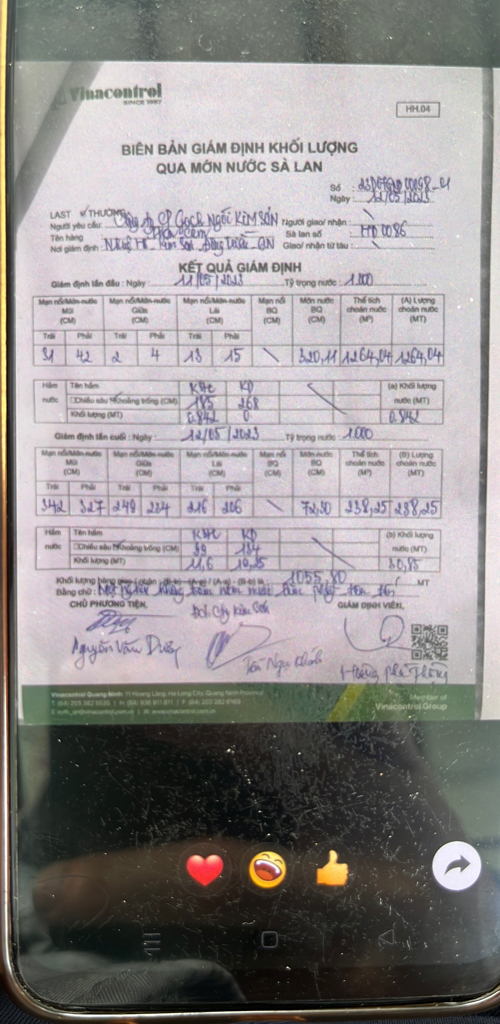 Vinacontrol
SINCE 1957
HH.04
BIÊN BẢN GIÁM ĐỊNH KHỐI LƯỢNG
QUA MỚN NƯỚC SÀ LAN
Số :
Ngày : 12/05/2023
LAST ✓THƯỜNG
Người yêu cầu: Công ty CP Gạch Ngói KIM SƠN Người giao/ nhận
Tên hàng Than cám Sà lan số HD 0086
Nơi giám định Kim Sơn Đông Triều - QN Giao/ nhận từ tàu :
KẾT QUẢ GIÁM ĐỊNH
Giám định lần đầu : Ngày 11/05/2023 Tỷ trọng nước : 1.000
Mạn nổi/Mớn nước Mũi (CM) Mạn nổi/Mớn nước Giữa (CM) Mạn nổi/Mớn nước Lái (CM) Mạn nổi BQ (CM) Mớn nước BQ (CM) Thể tích choán nước (M³) (A) Lượng choán nước (MT)
Trái Phải Trái Phải Trái Phải
31 42 2 4 13 15 320,11 1264,04 1264,04
Hầm nước Tên hầm KĐL KĐ (a) Khối lượng nước (MT)
Chiều sâu Khoảng trống (CM) 185 268
Khối lượng (MT) 0.842 0 0.842
Giám định lần cuối : Ngày 12/05/2023 Tỷ trọng nước : 1.000
Mạn nổi/Mớn nước Mũi (CM) Mạn nổi/Mớn nước Giữa (CM) Mạn nổi/Mớn nước Lái (CM) Mạn nổi BQ (CM) Mớn nước BQ (CM) Thể tích choán nước (M³) (B) Lượng choán nước (MT)
Trái Phải Trái Phải Trái Phải
342 327 249 254 216 206 72,30 238,25 238,25
Hầm nước Tên hầm KĐL KĐ (b) Khối lượng nước (MT)
Chiều sâu Khoảng trống (CM) 134
Khối lượng (MT) 11,6 30,85
Khối lượng hàng giao / nhận (B-b) - (A-a) / (A-a) - (B-b) là 1055,80 MT
Bằng chữ : Một nghìn không trăm năm mươi năm phẩy tám
CHỦ PHƯƠNG TIỆN, GIÁM ĐỊNH VIÊN,
Nguyễn Văn
Vinacontrol Quang Ninh: 11 Hoang Long, Ha Long City, Quang Ninh Province
Member of
Vinacontrol Group